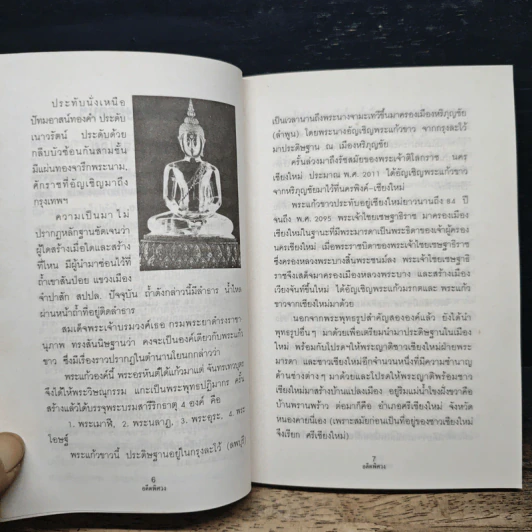 ประทับนั่งเหนือ
ปัทมอาสน์ทองคำ ประดับ
เนาวรัตน์ ประดับด้วย
กลีบบัวซ้อนกันสามชั้น
มีแผ่นทองจารึกพระนาม,
ศักราชที่อัญเชิญมาถึง
กรุงเทพฯ
ความเป็นมา ไม่
ปรากฏหลักฐานชัดเจนว่า
ผู้ใดสร้างเมื่อใดและสร้าง
ที่ไหน มีผู้นำมาซ่อนไว้ที่
ถ้ำเขาส้มป่อย แขวงเมือง
จำปาสัก สปปล. ปัจจุบัน ถ้ำดังกล่าวนี้มีลำธาร น้ำไหล
ผ่านหน้าถ้ำที่อยู่ติดลำธาร
สมเด็จพระเจ้าบรมวงศ์เธอ กรมพระยาดำรงราชา-
นุภาพ ทรงสันนิษฐานว่า คงจะเป็นองค์เดียวกับพระแก้ว
ขาว ซึ่งมีเรื่องราวปรากฏในตำนานโยนกกล่าวว่า
พระแก้วองค์นี้ พระอรหันต์ได้แก้วมาแต่ จันทรเทวบุตร
จึงได้ให้พระวิษณุกรรม แกะเป็นพระพุทธปฏิมากร ครั้น
สร้างแล้วได้บรรจุพระบรมสารีริกธาตุ 4 องค์ คือ
1. พระเมาฬี, 2. พระนลาฏ, 3. พระอุระ, 4. พระ
โอษฐ์
พระแก้วขาวนี้ ประดิษฐานอยู่ในกรุงละโว้ (ลพบุรี)
6
อดีตพิศวง
เป็นเวลานานถึงพระนางจามะเทวีขึ้นมาครองเมืองหริภุญชัย
(ลำพูน) โดยพระนางอัญเชิญพระแก้วขาว จากกรุงละโว้
มาประดิษฐาน ณ. เมืองหริภุญชัย
ครั้นล่วงมาถึงรัชสมัยของพระเจ้าติโลกราช นคร
เชียงใหม่ ประมาณ พ.ศ. 2011 ได้อัญเชิญพระแก้วขาว
จากหริภุญชัยมาไว้ที่นครพิงค์-เชียงใหม่
พระแก้วขาวประทับอยู่เชียงใหม่ยาวนานถึง 84 ปี
จนถึง พ.ศ. 2095 พระเจ้าไชยเชษฐาธิราช มาครองเมือง
เชียงใหม่ในฐานะที่มีพระมารดาเป็นพระธิดาของเจ้าผู้ครอง
นครเชียงใหม่ เมื่อพระราชบิดาของพระเจ้าไชยเชษฐาธิราช
ซึ่งครองหลวงพระบางสิ้นพระชนม์ลง พระเจ้าไชยเชษฐาธิ
ราชจึงเสด็จมาครองเมืองหลวงพระบาง และสร้างเมือง
เวียงจันท์ขึ้นใหม่ ได้อัญเชิญพระแก้วมรกตและ พระแก้ว
ขาวจากเชียงใหม่มาด้วย
นอกจากพระพุทธรูปสำคัญสององค์แล้ว ยังได้นำ
พุทธรูปอื่นๆ มาด้วยเพื่อเตรียมนำมาประดิษฐานในเมือง
ใหม่ พร้อมกับโปรดฯให้พระญาติซึ่งชาวเชียงใหม่ฝ่ายพระ
มารดา และชาวเชียงใหม่อีกจำนวนหนึ่งที่มีความชำนาญ
ด้านช่างต่างๆ มาด้วยและโปรดฯให้พระญาติพร้อมชาว
เชียงใหม่มาสร้างบ้านแปลงเมือง อยู่ริมแม่น้ำโขงฝั่งขวาคือ
บ้านพรานพร้าว ต่อมาก็คือ อำเภอศรีเชียงใหม่ จังหวัด
หนองคายนี่เอง (เพราะสมัยก่อนเป็นที่อยู่ของชาวเชียงใหม่
จึงเรียก ศรีเชียงใหม่)
7
อดีตพิศวง